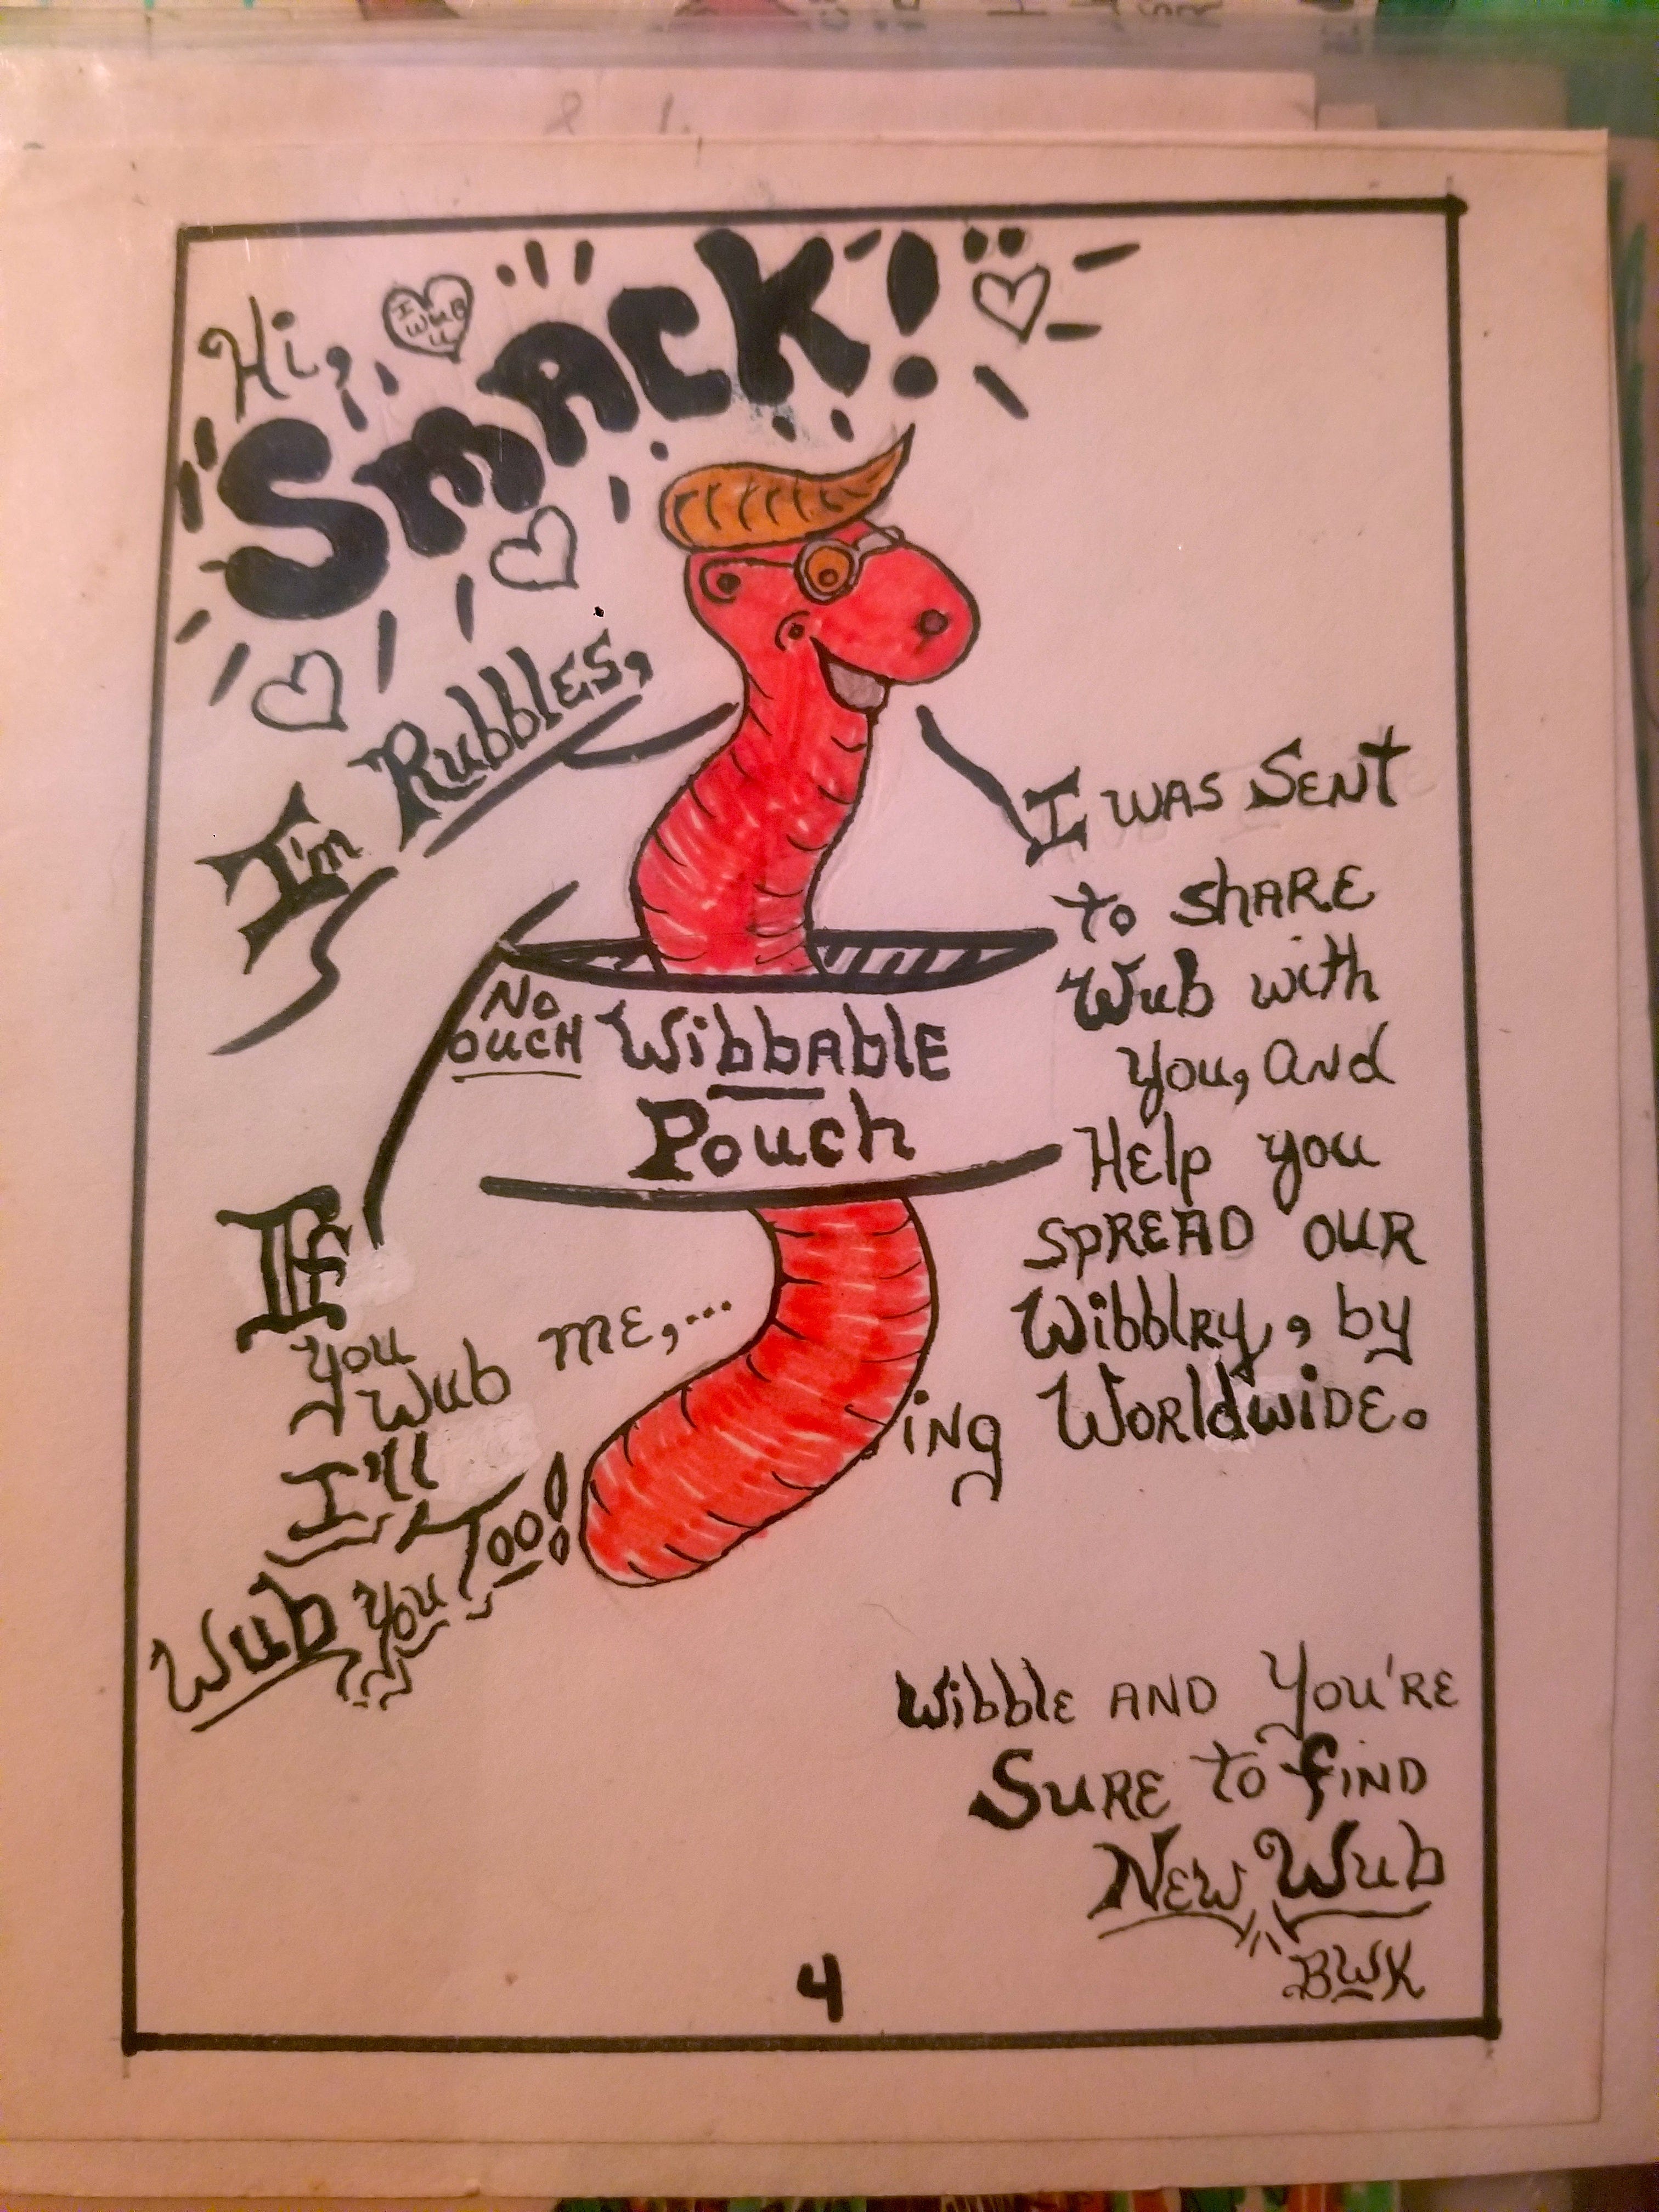 & 1.
Hi,
I
WUB
U
SMACK!
I'm Rubbles,
I WAS SENT
to SHARE
Wub with
You, AND
HElp you
SPREAD OUR
Wibblry, by
ing WORldwiDE.
NO
OUCH
WibbAblE
Pouch
If
you
Wub ME,...
I'll
Wub You Too!
Wibble AND You'RE
SURE to fIND
NEW Wub
BWK
4